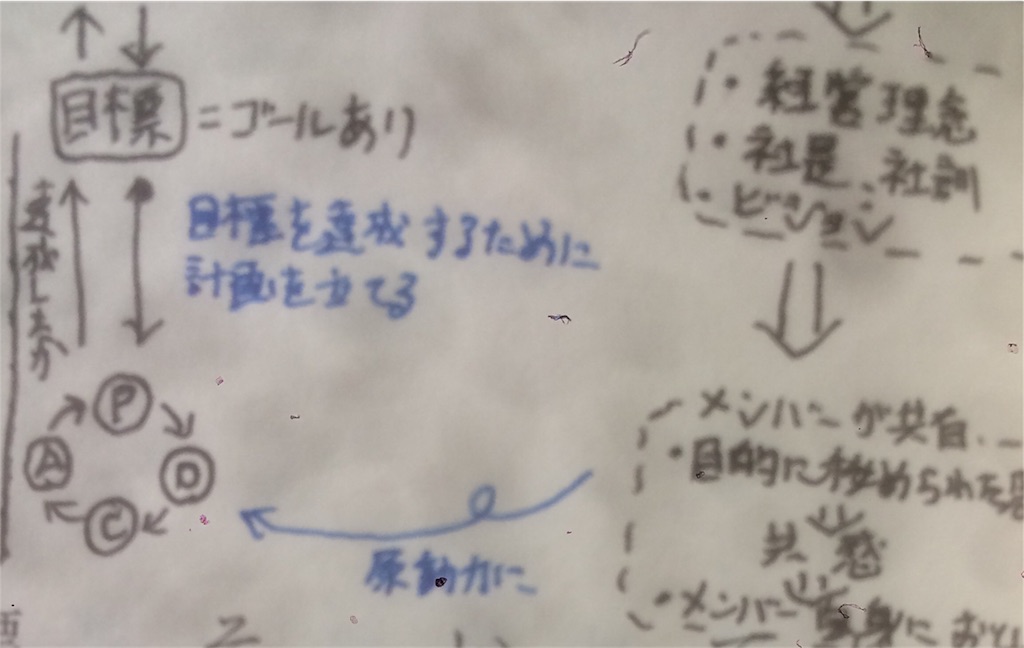 目標 = ゴールあり
達成したか
目標を達成するために
計画を立てる
P
D
C
A
原動力に
・経営理念
・社是、社訓
・ビジョン
メンバーが共有
・目的に秘められた
共感
・メンバー自身に